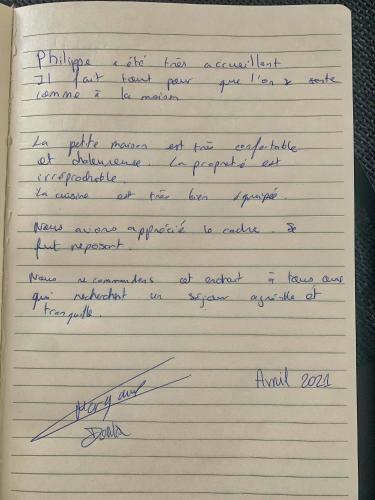 Philippe a été très accueillant
Il fait tout pour que l'on se sente
comme à la maison
La petite maison est très confortable
et chaleureuse. La propreté est
irréprochable.
La cuisine est très bien équipée.
Nous avons apprécié le cadre. Se
fut reposant.
Nous recommandons cet endroit à tous ceux
qui recherchent un séjour agréable et
tranquille.
Avril 2021